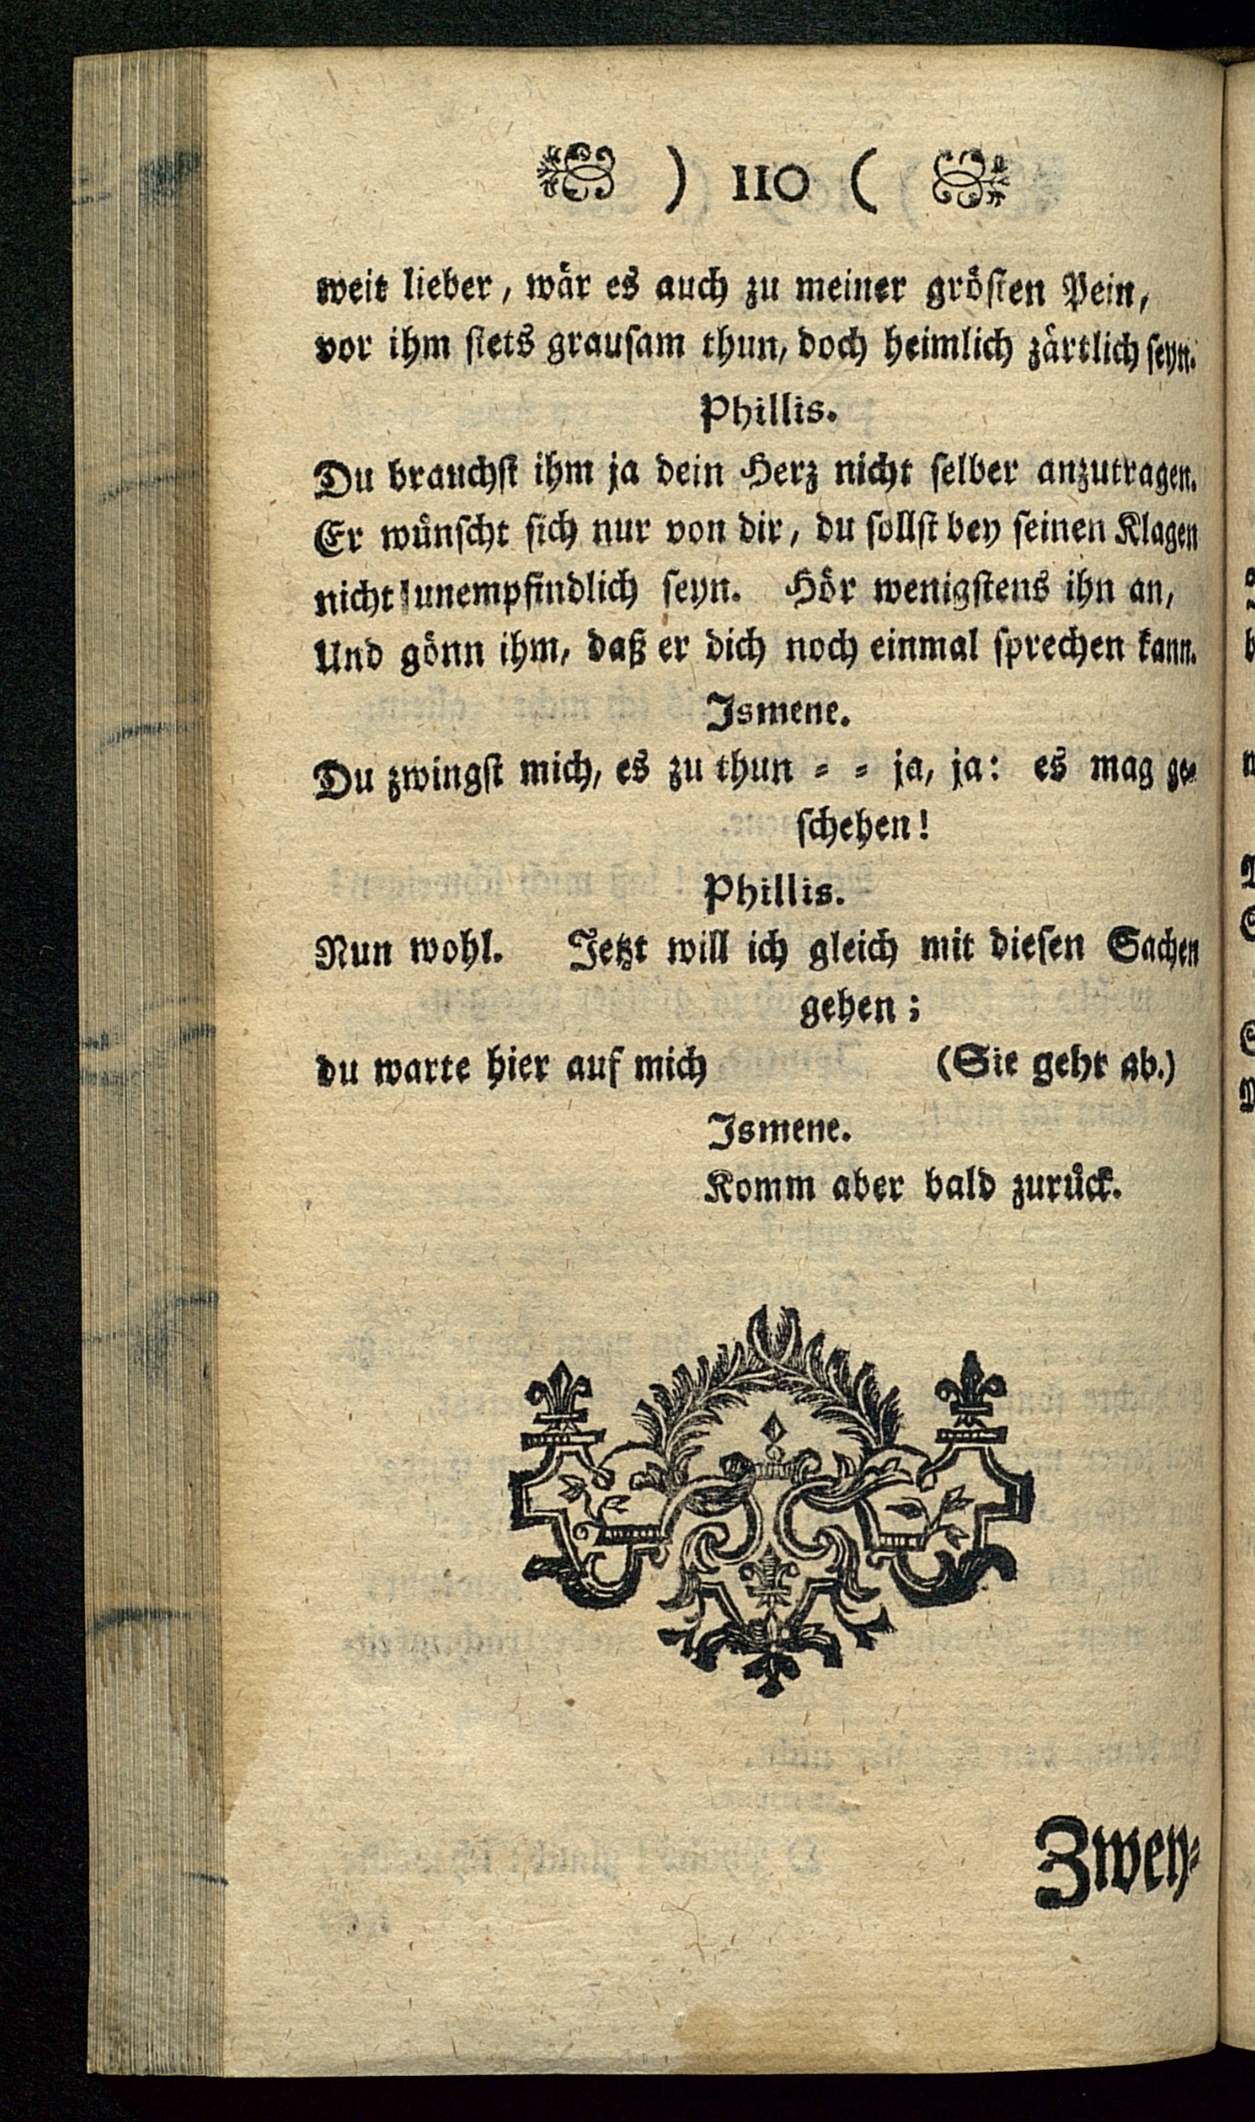 ) 110 (
weit lieber, wär es auch zu meiner grösten Pein,
vor ihm stets grausam thun, doch heimlich zärtlich seyn.
Phillis.
Du brauchst ihm ja dein Herz nicht selber anzutragen.
Er wünscht sich nur von dir, du sollst bey seinen Klagen
nicht unempfindlich seyn. Hör wenigstens ihn an,
Und gönn ihm, daß er dich noch einmal sprechen kann.
Ismene.
Du zwingst mich, es zu thun = = ja, ja: es mag ge=
schehen!
Phillis.
Nun wohl. Jetzt will ich gleich mit diesen Sachen
gehen;
du warte hier auf mich (Sie geht ab.)
Ismene.
Komm aber bald zurück.
Zwey=